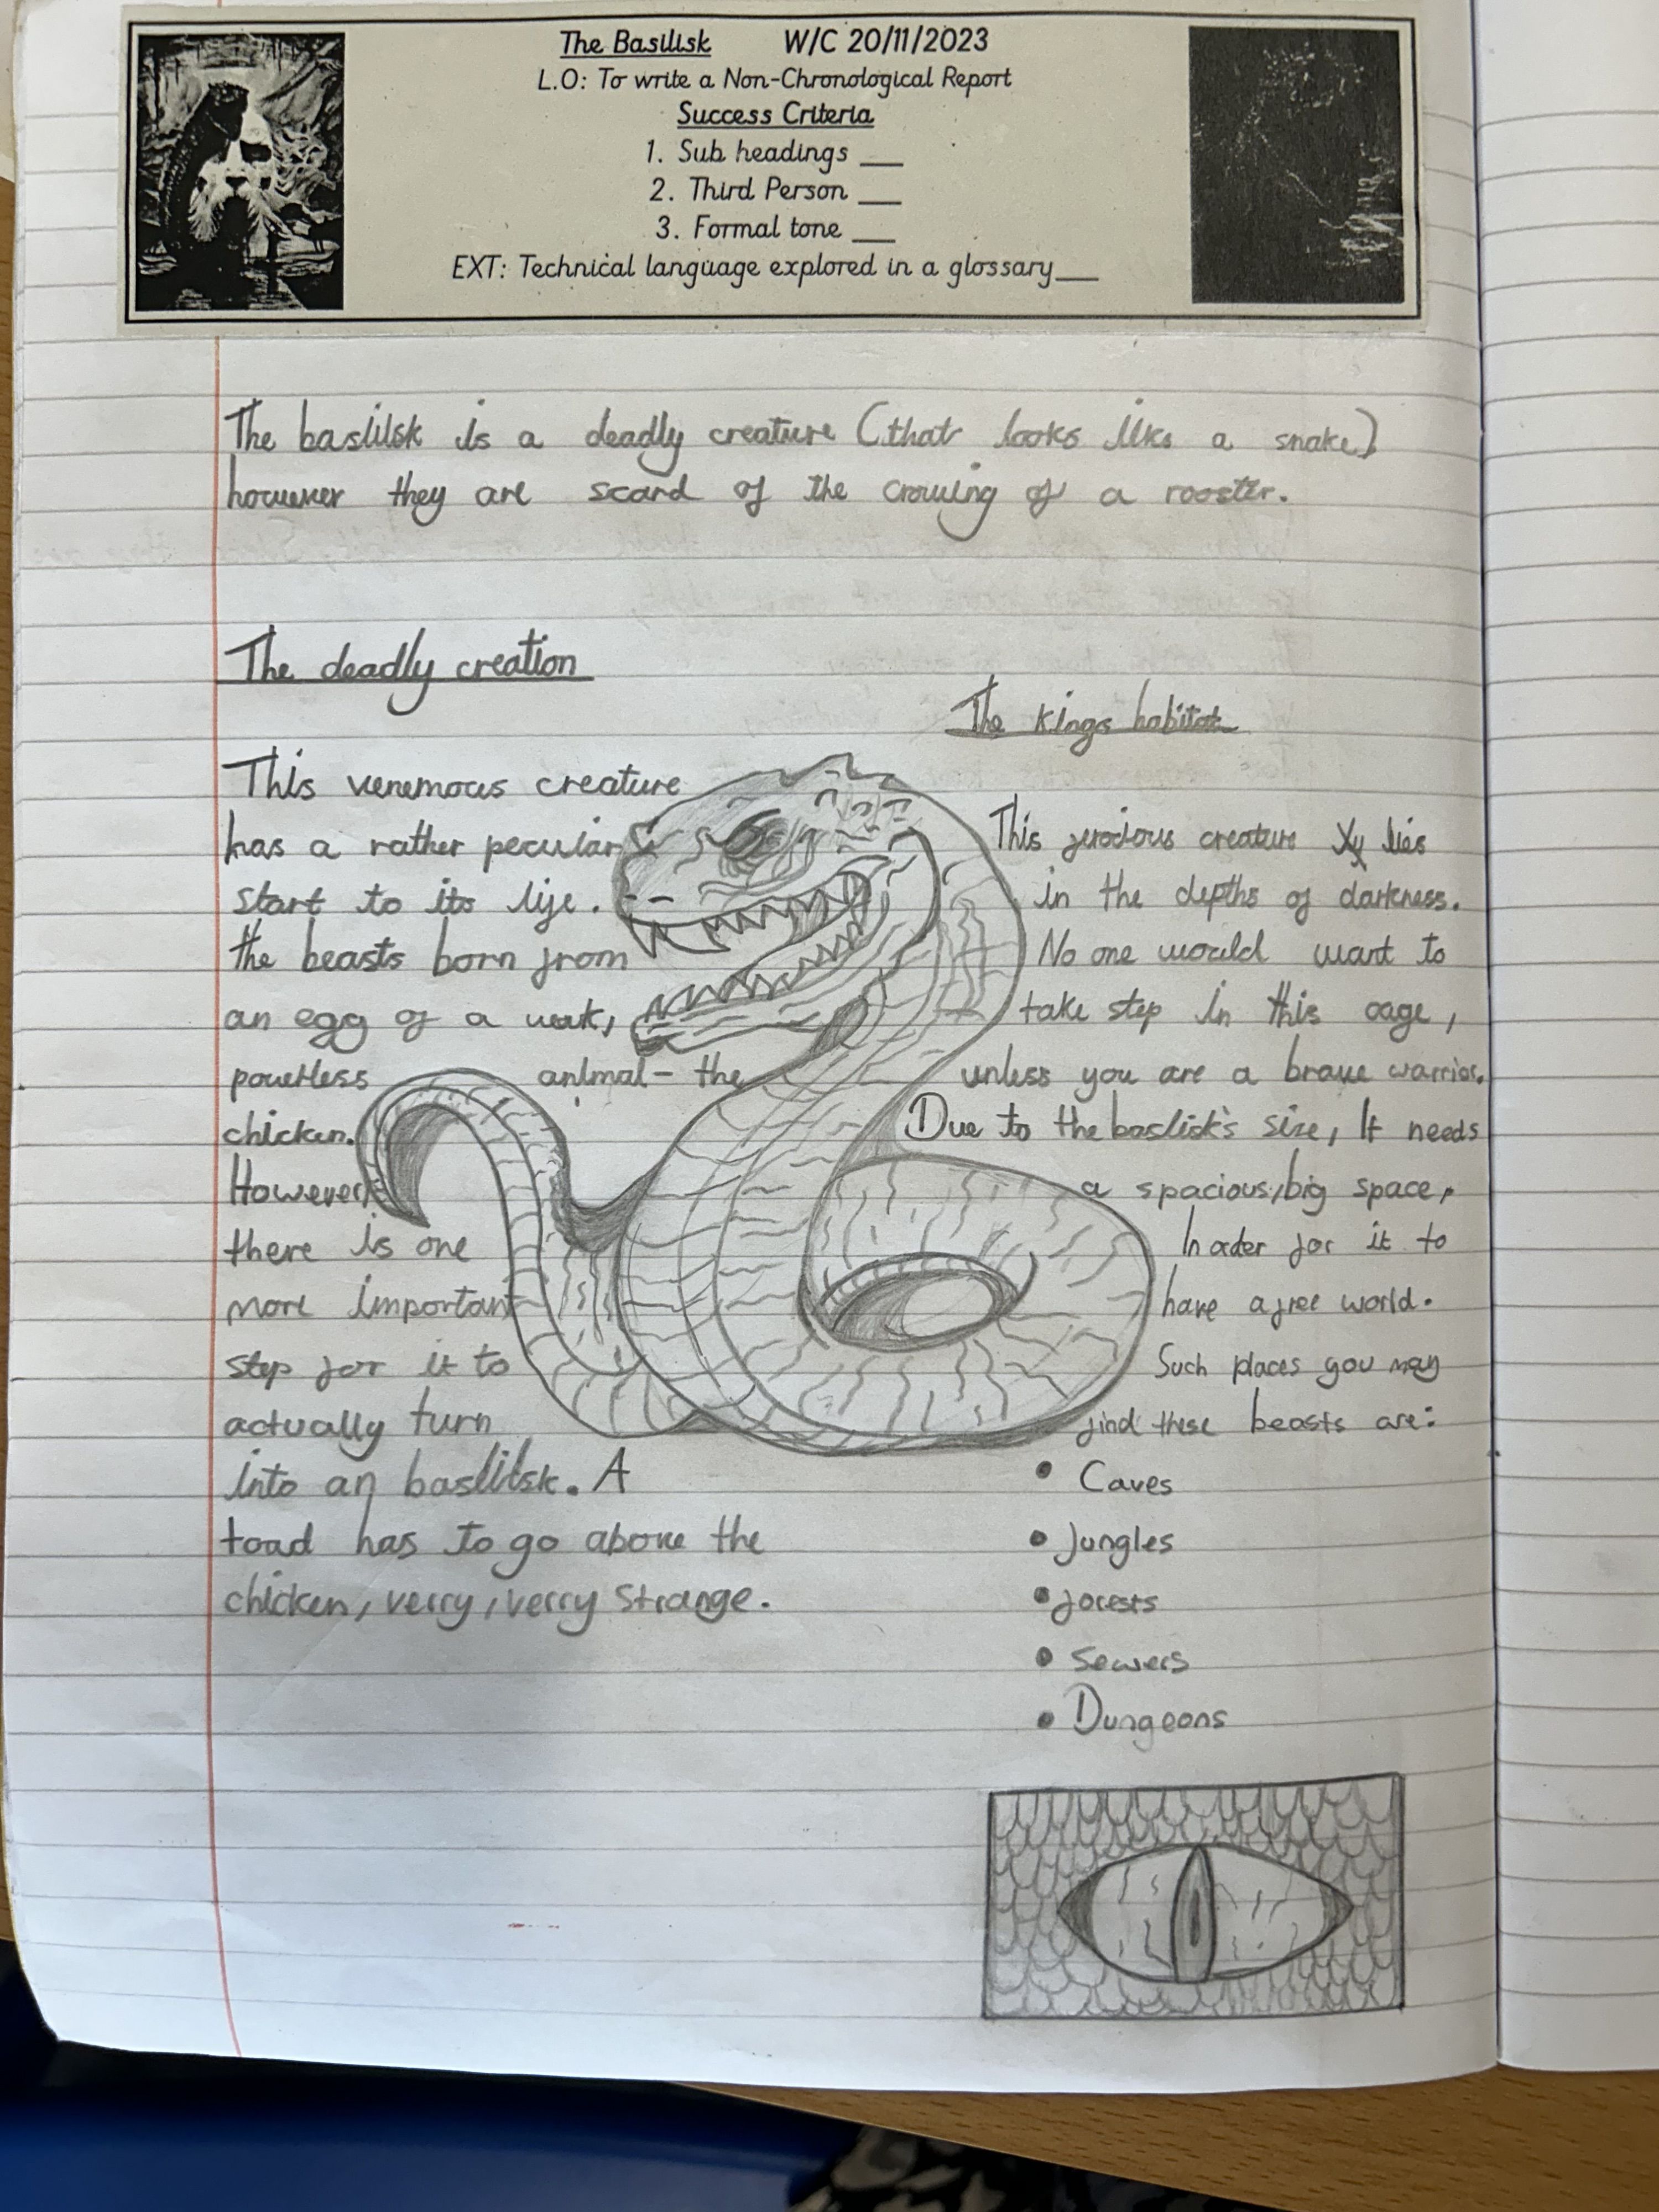 The Basilisk W/C 20/11/2023
L.O: To write a Non-Chronological Report
Success Criteria
1. Sub headings ___
2. Third Person ___
3. Formal tone ___
EXT: Technical language explored in a glossary___
The baslilsk is a deadly creature (that looks like a snake)
however they are scard of the crowing of a rooster.
The deadly creation
This venemous creature
has a rather peculiar
start to its life.
the beasts born from
an egg of a weak,
powerless animal- the
chicken.
However,
there is one
more important
step for it to
actually turn
into an baslilsk. A
toad has to go above the
chicken, verry, verry strange.
The Kings habitat
This ferocious creature lies
in the depths of darkness.
No one would want to
take step in this cage,
unless you are a brave warrior.
Due to the baslisk's size, It needs
a spacious, big space,
In oder for it to
have a free world.
Such places you may
find these beasts are:
• Caves
• Jungles
• forests
• Sewers
• Dungeons